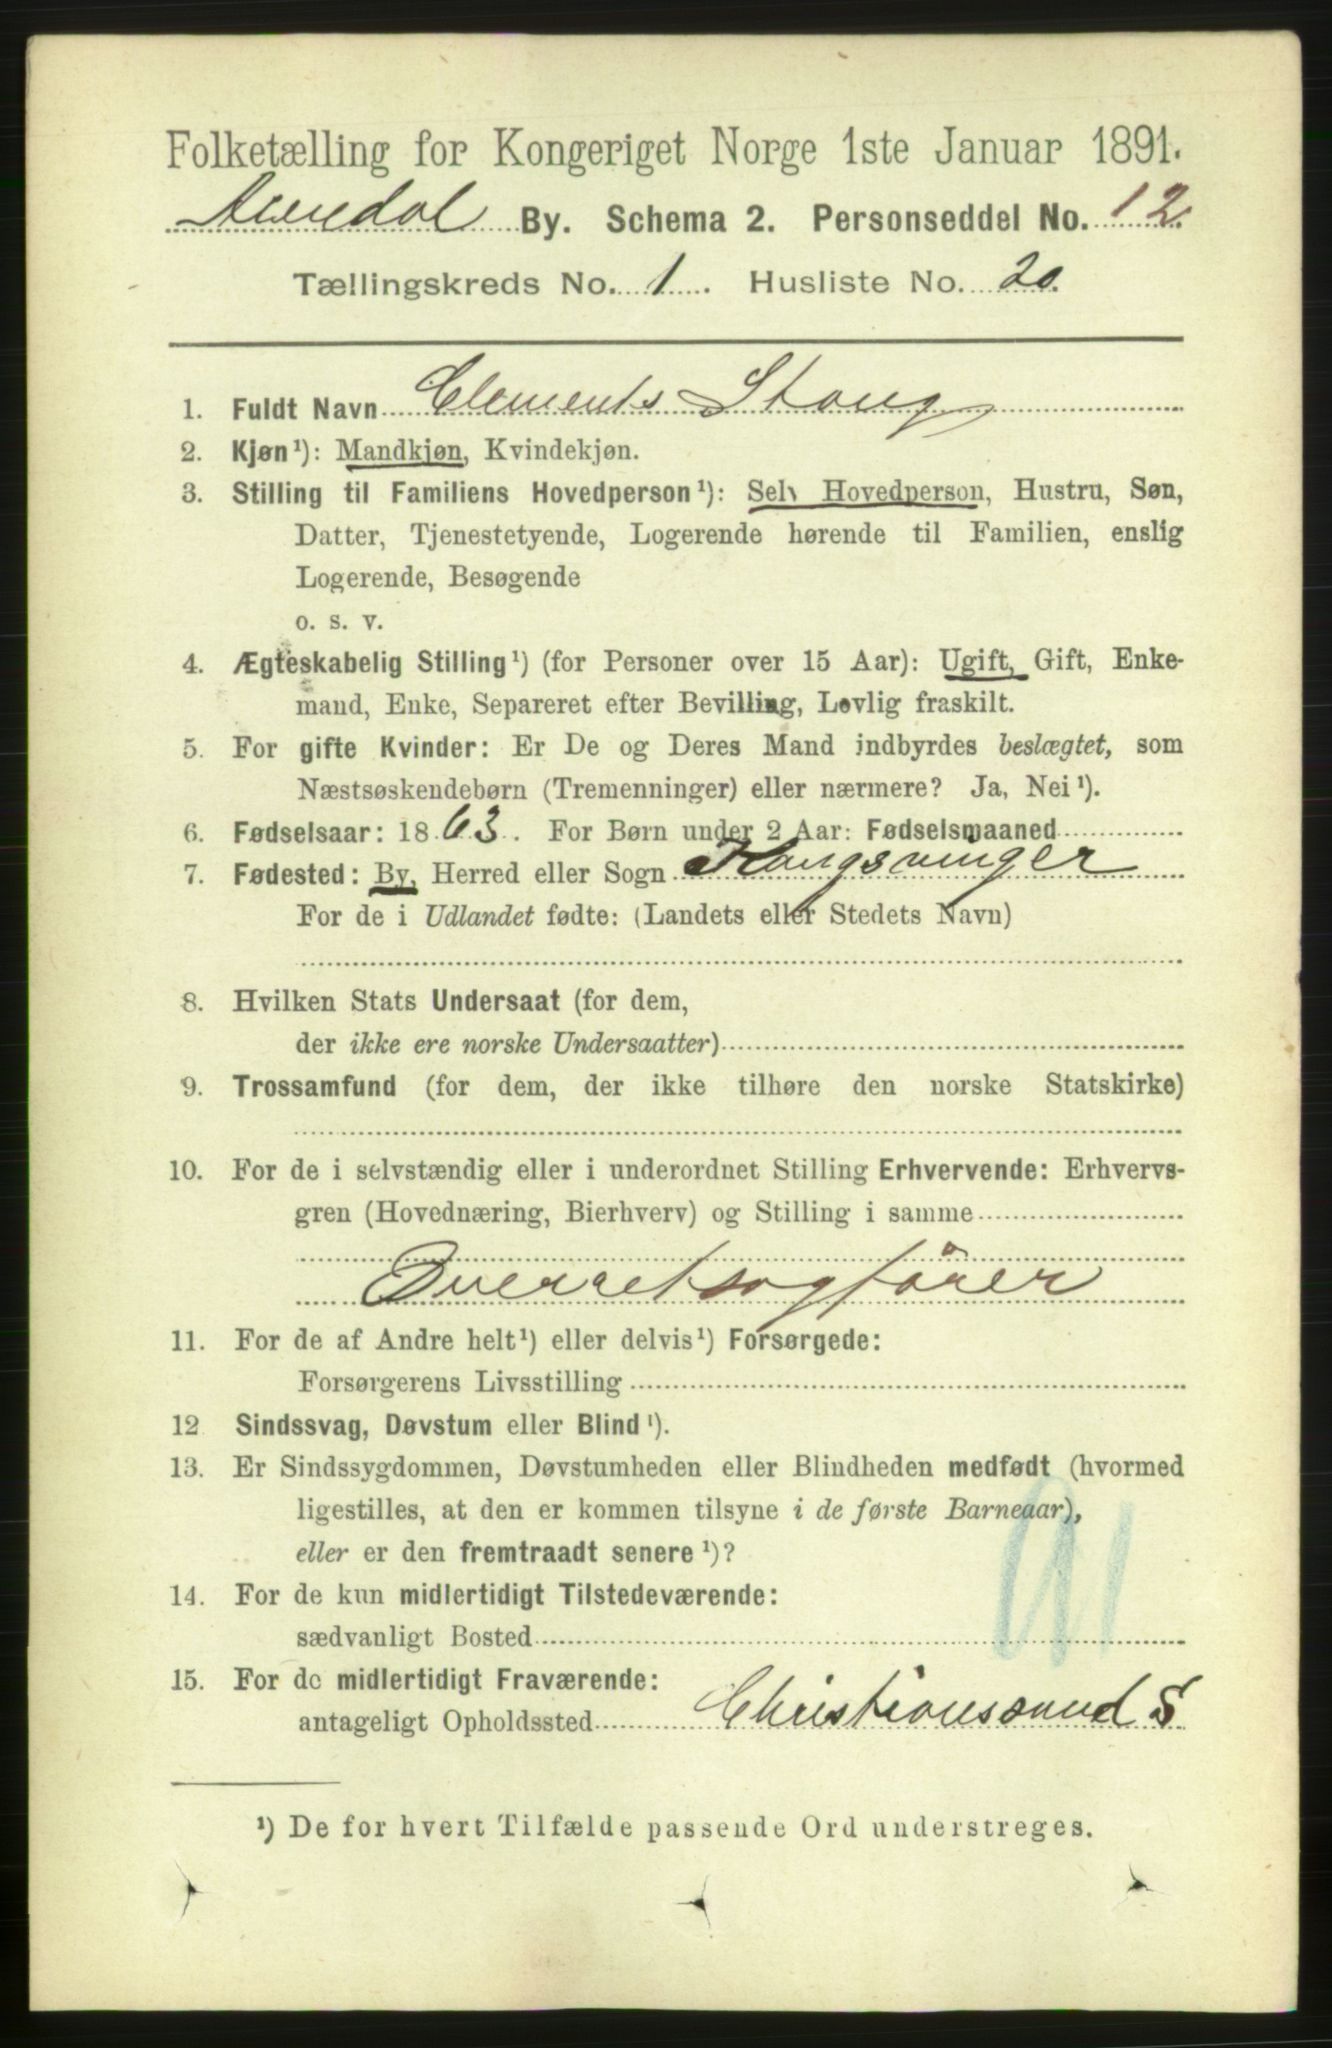 Folketælling for Kongeriget Norge 1ste Januar 1891.
Arendal By. Schema 2. Personseddel No. 12.
Tællingskreds No. 1. Husliste No. 20.
1. Fuldt Navn Clements Stang
2. Kjøn¹): Mandkjøn, Kvindekjøn.
3. Stilling til Familiens Hovedperson¹): Selv Hovedperson, Hustru, Søn,
Datter, Tjenestetyende, Logerende hørende til Familien, enslig
Logerende, Besøgende
o. s. v.
4. Ægteskabelig Stilling¹) (for Personer over 15 Aar): Ugift, Gift, Enke-
mand, Enke, Separeret efter Bevilling, Lovlig fraskilt.
5. For gifte Kvinder: Er De og Deres Mand indbyrdes beslægtet, som
Næstsøskendebørn (Tremenninger) eller nærmere? Ja, Nei¹).
6. Fødselsaar: 1863. For Børn under 2 Aar: Fødselsmaaned
7. Fødested: By, Herred eller Sogn Kongsvinger
For de i Udlandet fødte: (Landets eller Stedets Navn)
8. Hvilken Stats Undersaat (for dem,
der ikke ere norske Undersaatter)
9. Trossamfund (for dem, der ikke tilhøre den norske Statskirke)
10. For de i selvstændig eller i underordnet Stilling Erhvervende: Erhvervs-
gren (Hovednæring, Bierhverv) og Stilling i samme
Overretsagfører
11. For de af Andre helt¹) eller delvis¹) Forsørgede:
Forsørgerens Livsstilling
12 Sindssvag, Døvstum eller Blind¹).
13. Er Sindssygdommen, Døvstumheden eller Blindheden medfødt (hvormed
ligestilles, at den er kommen tilsyne i de første Barneaar),
eller er den fremtraadt senere¹)?
14. For de kun midlertidigt Tilstedeværende:
sædvanligt Bosted
15. For de midlertidigt Fraværende:
antageligt Opholdssted Christianssund S
¹) De for hvert Tilfælde passende Ord understreges.